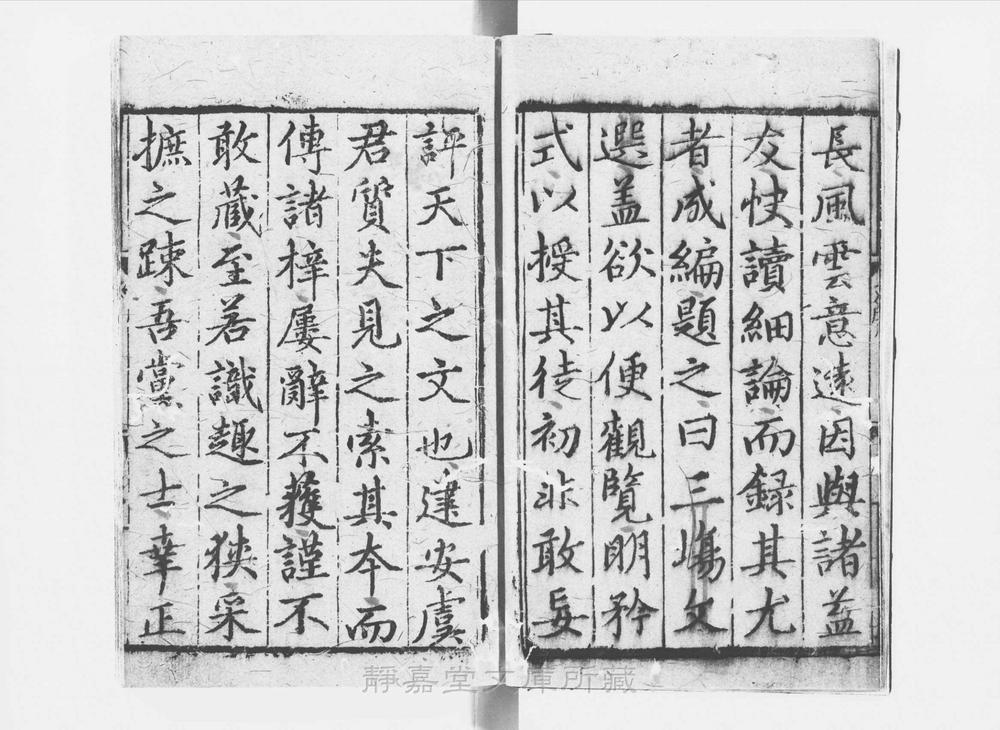 長風雲意遠因與諸益
友快讀細論而録其尤
者成編題之曰三塲文
選盖欲以便觀覽明矜
式以授其徒初非敢妄
評天下之文也建安虞
君質夫見之索其夲而
傳諸梓屢辭不獲謹不
敢藏至若識趣之狹采
摭之踈吾黨之士幸正
靜嘉堂文庫所藏